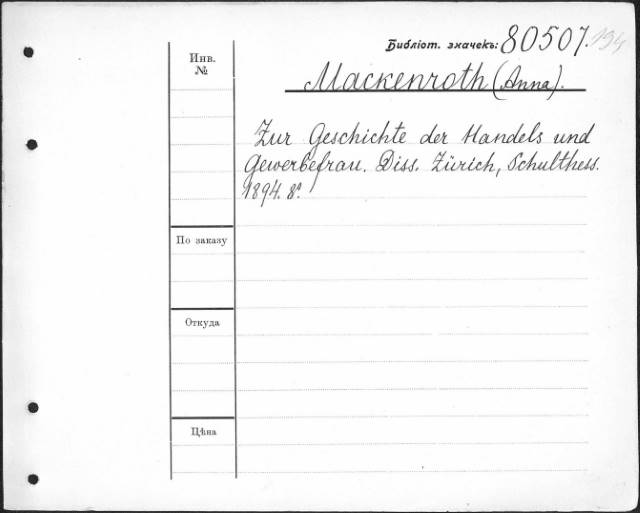 Библіот. значекъ: 80507.194
Инв. №
Mackenroth (Anna).
Zur Geschichte der Handels und
Gewerbefrau. Diss. Zürich, Schulthess.
1894. 8º.
По заказу
Откуда
Цѣна